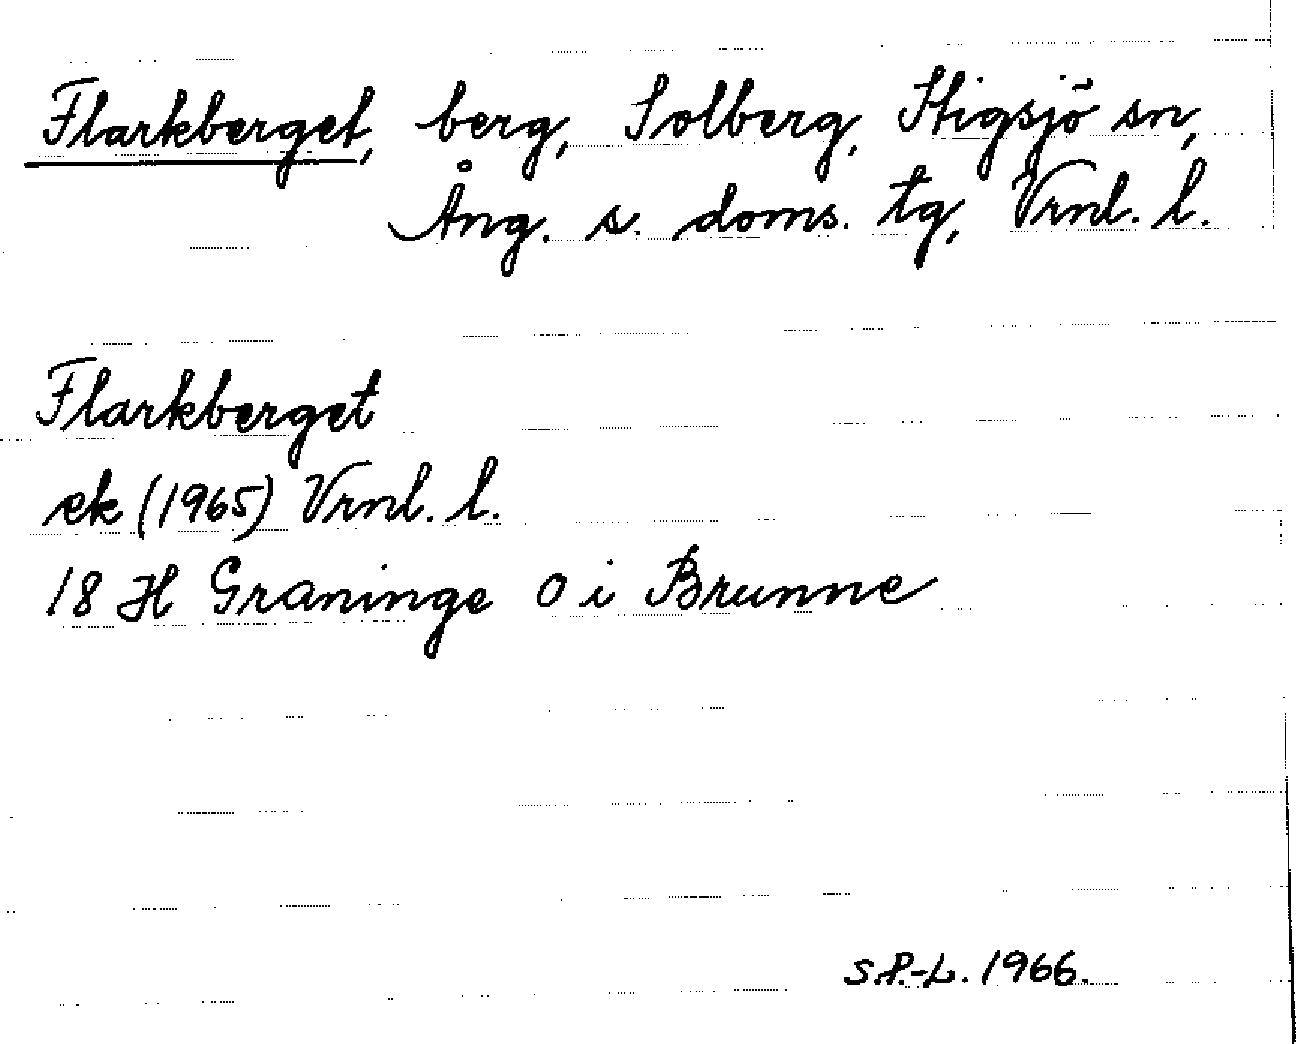 Flarkberget, berg, Solberg, Stigsjö sn,
Ång. s. doms. tg, Vrnl. l.
Flarkberget
ek (1965) Vrnl. l.
18 H Graninge O i Brunne
S.P.-L. 1966.